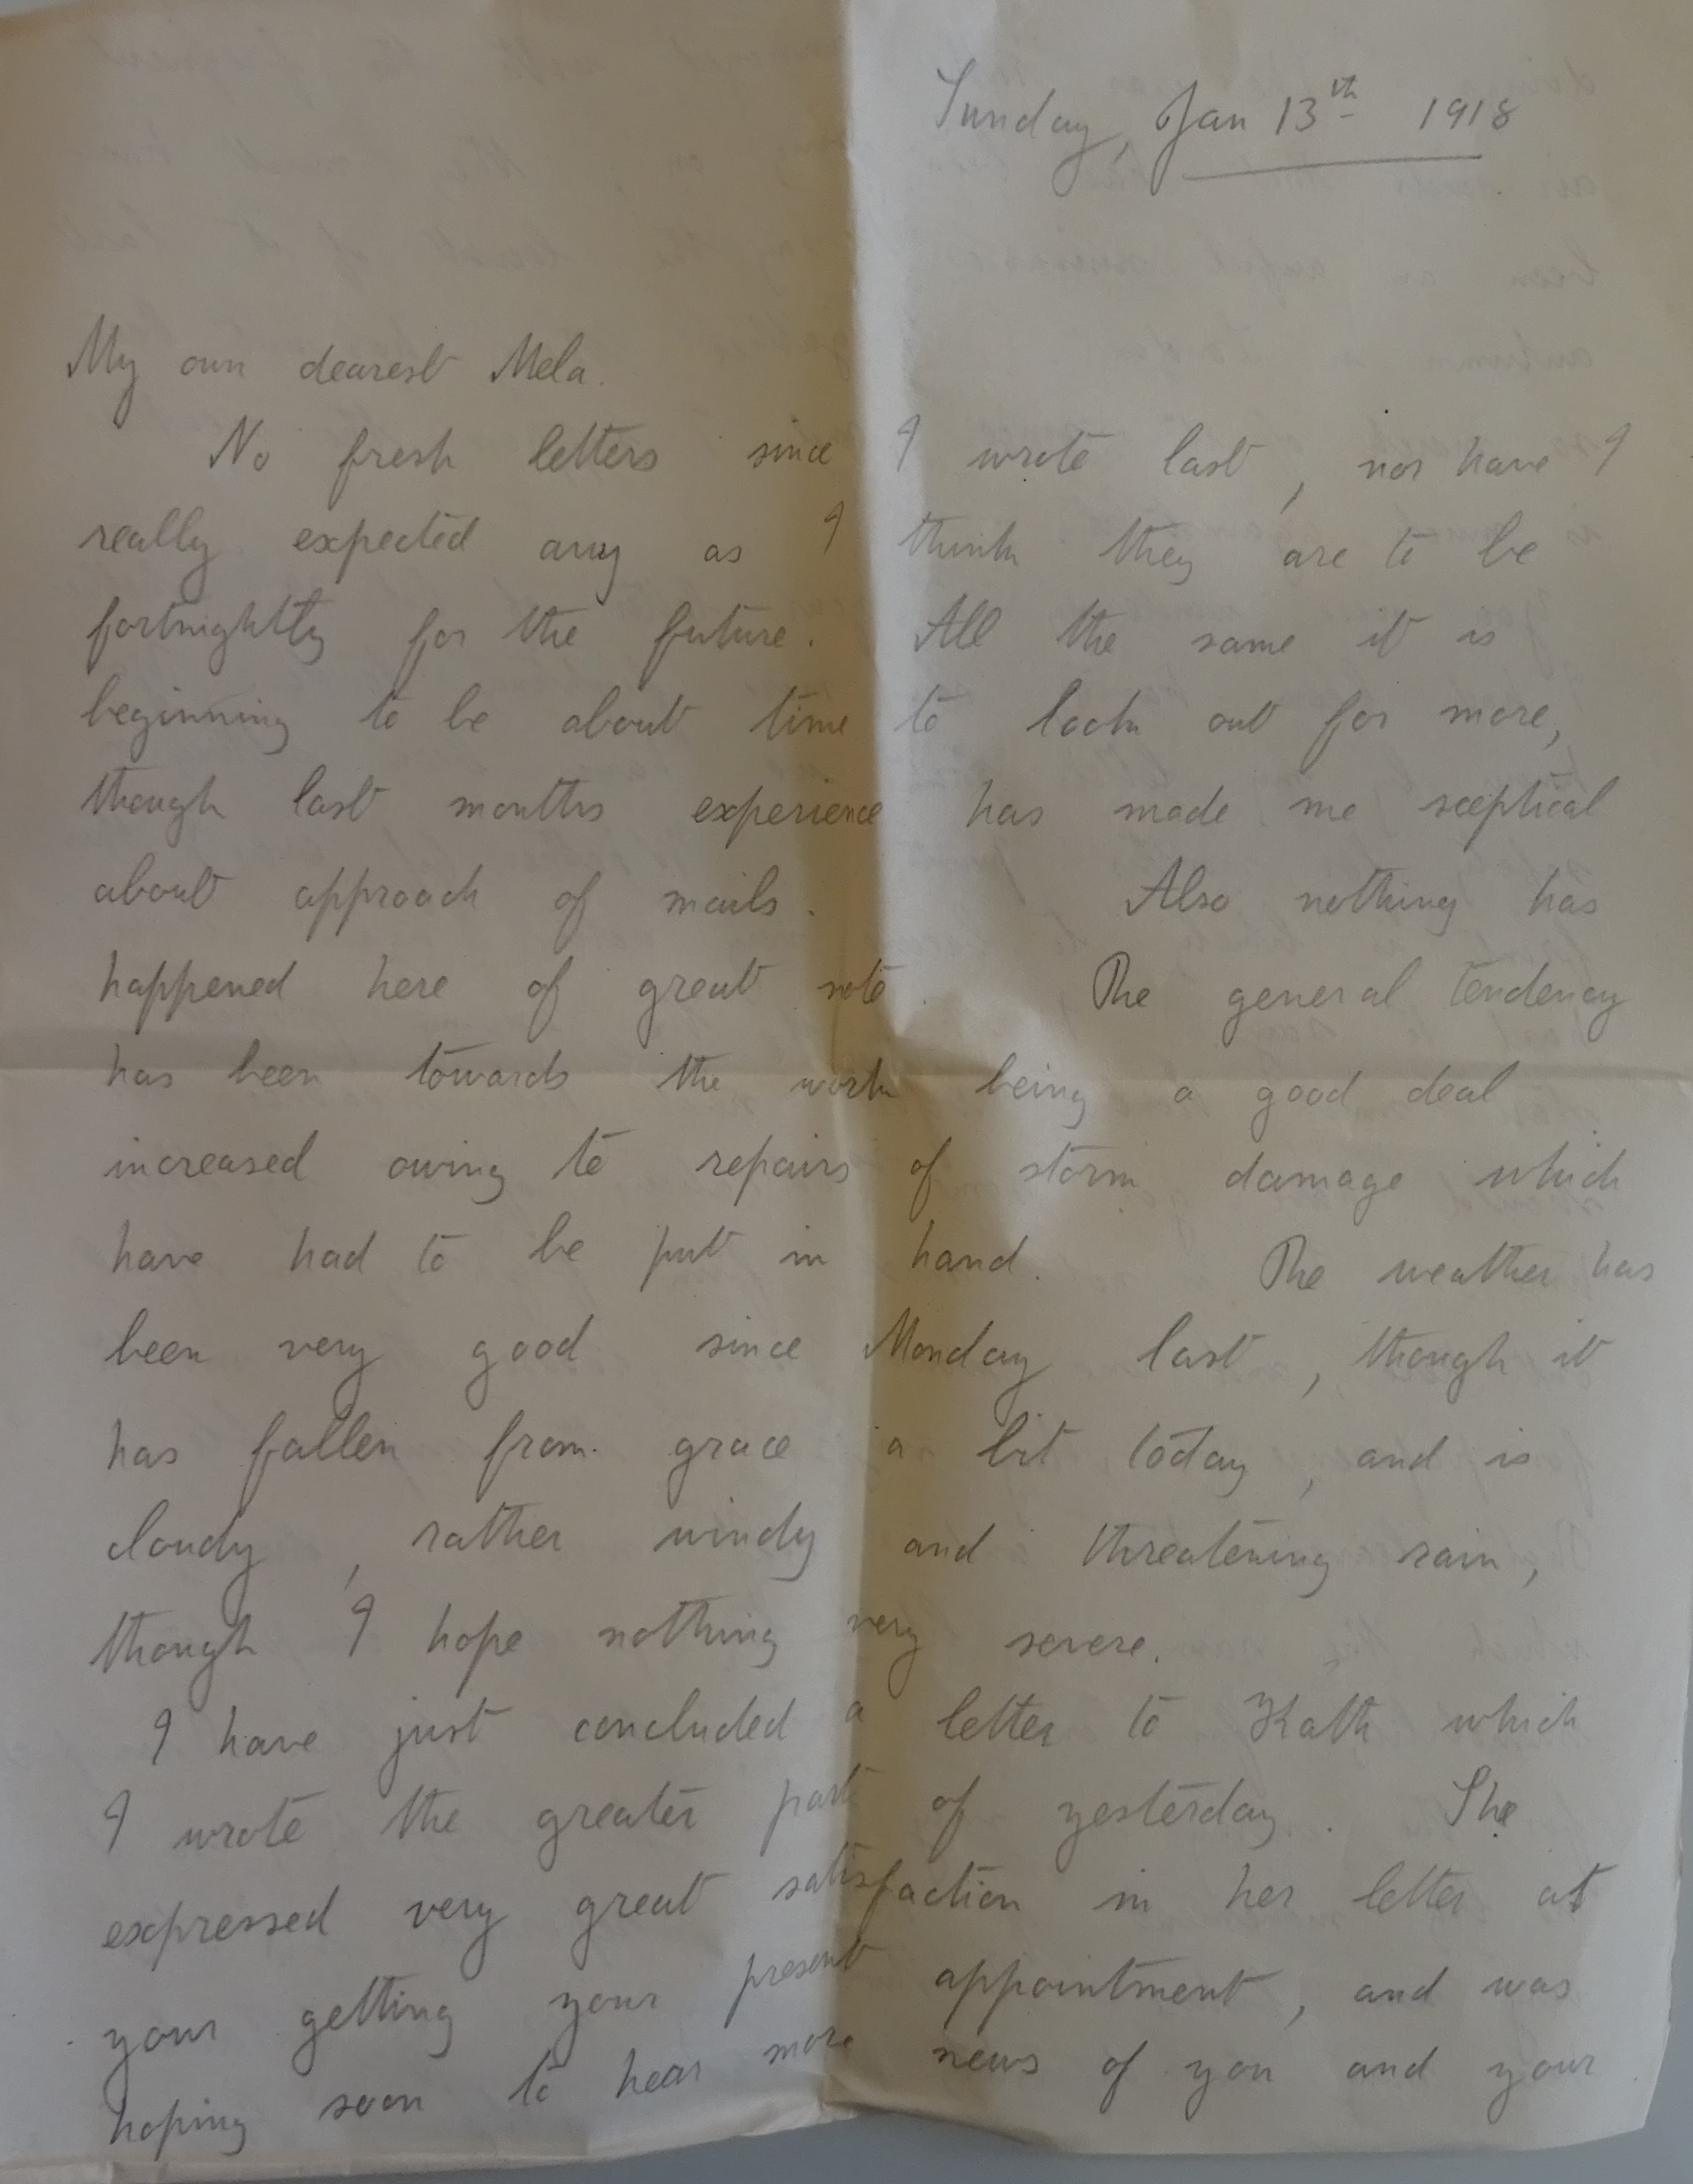 Sunday, Jan 13th 1918
My own dearest Mela.
No fresh letters since I wrote last, nor have I
really expected any as I think they are to be
fortnightly for the future. All the same it is
beginning to be about time to look out for more,
though last months experience has made me sceptical
about approach of mails. Also nothing has
happened here of great note. The general tendency
has been towards the work being a good deal
increased owing to repairs of storm damage which
have had to be put in hand. The weather has
been very good since Monday last, though it
has fallen from grace a bit today, and is
cloudy, rather windy and threatening rain,
though I hope nothing very severe.
I have just concluded a letter to Kath which
I wrote the greater part of yesterday. She
expressed very great satisfaction in her letter at
your getting your present appointment, and was
hoping soon to hear more news of you and your